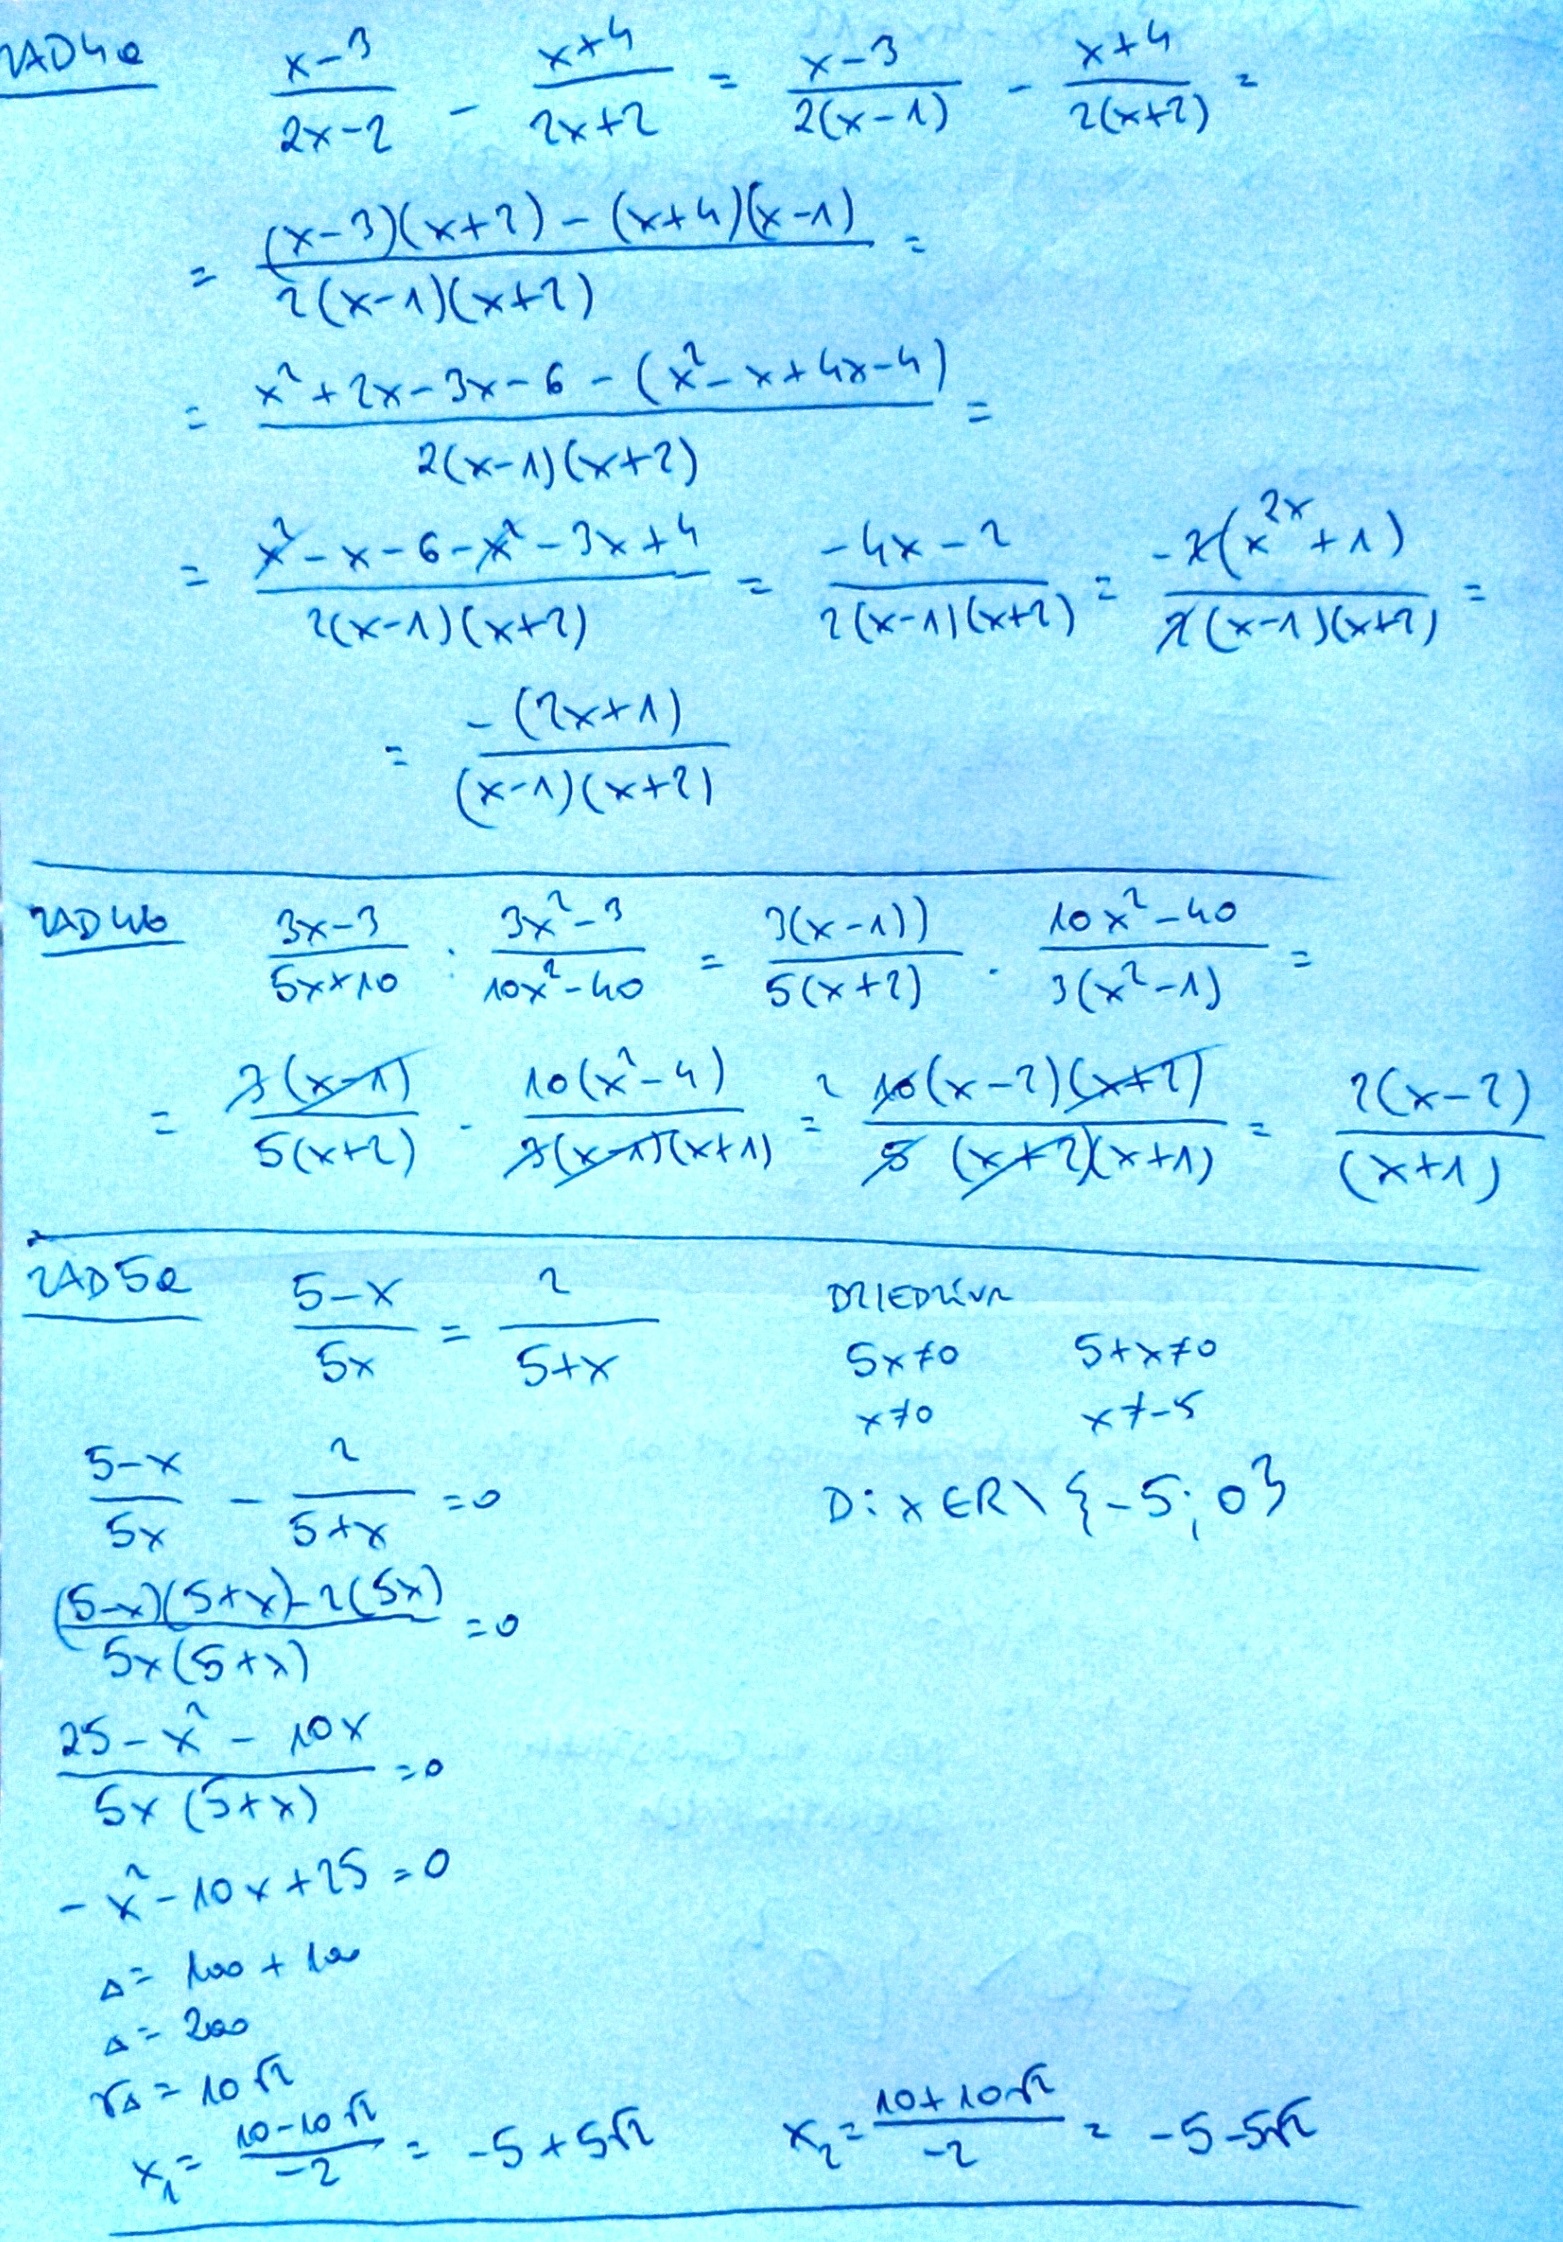 ZAD4a (x-3)/(2x-2) - (x+4)/(2x+2) = (x-3)/(2(x-1)) - (x+4)/(2(x+2)) =
= ((x-3)(x+2) - (x+4)(x-1))/(2(x-1)(x+2)) =
= (x²+2x-3x-6-(x²-x+4x-4))/(2(x-1)(x+2)) =
= (x²-x-6-x²-3x+4)/(2(x-1)(x+2)) = (-4x-2)/(2(x-1)(x+2)) = (-2(x 2x +1))/(2(x-1)(x+2)) =
= (-(2x+1))/((x-1)(x+2))
ZAD4b (3x-3)/(5x+10) : (3x²-3)/(10x²-40) = (3(x-1)))/(5(x+2)) · (10x²-40)/(3(x²-1)) =
= (3(x-1))/(5(x+2)) · (10(x²-4))/(3(x-1)(x+1)) = 2 (10(x-2)(x+2))/(5(x+2)(x+1)) = (2(x-2))/((x+1))
ZAD5a (5-x)/(5x) = 2/(5+x) DZIEDZINA
5x≠0 5+x≠0
x≠0 x≠-5
(5-x)/(5x) - 2/(5+x) = 0 D: x∈R\{-5; 0}
((5-x)(5+x)-2(5x))/(5x(5+x)) = 0
(25-x²-10x)/(5x(5+x)) = 0
-x²-10x+25=0
Δ= 100+100
Δ= 200
√Δ = 10√2
x₁= (10-10√2)/(-2) = -5+5√2 x₂= (10+10√2)/(-2) = -5-5√2